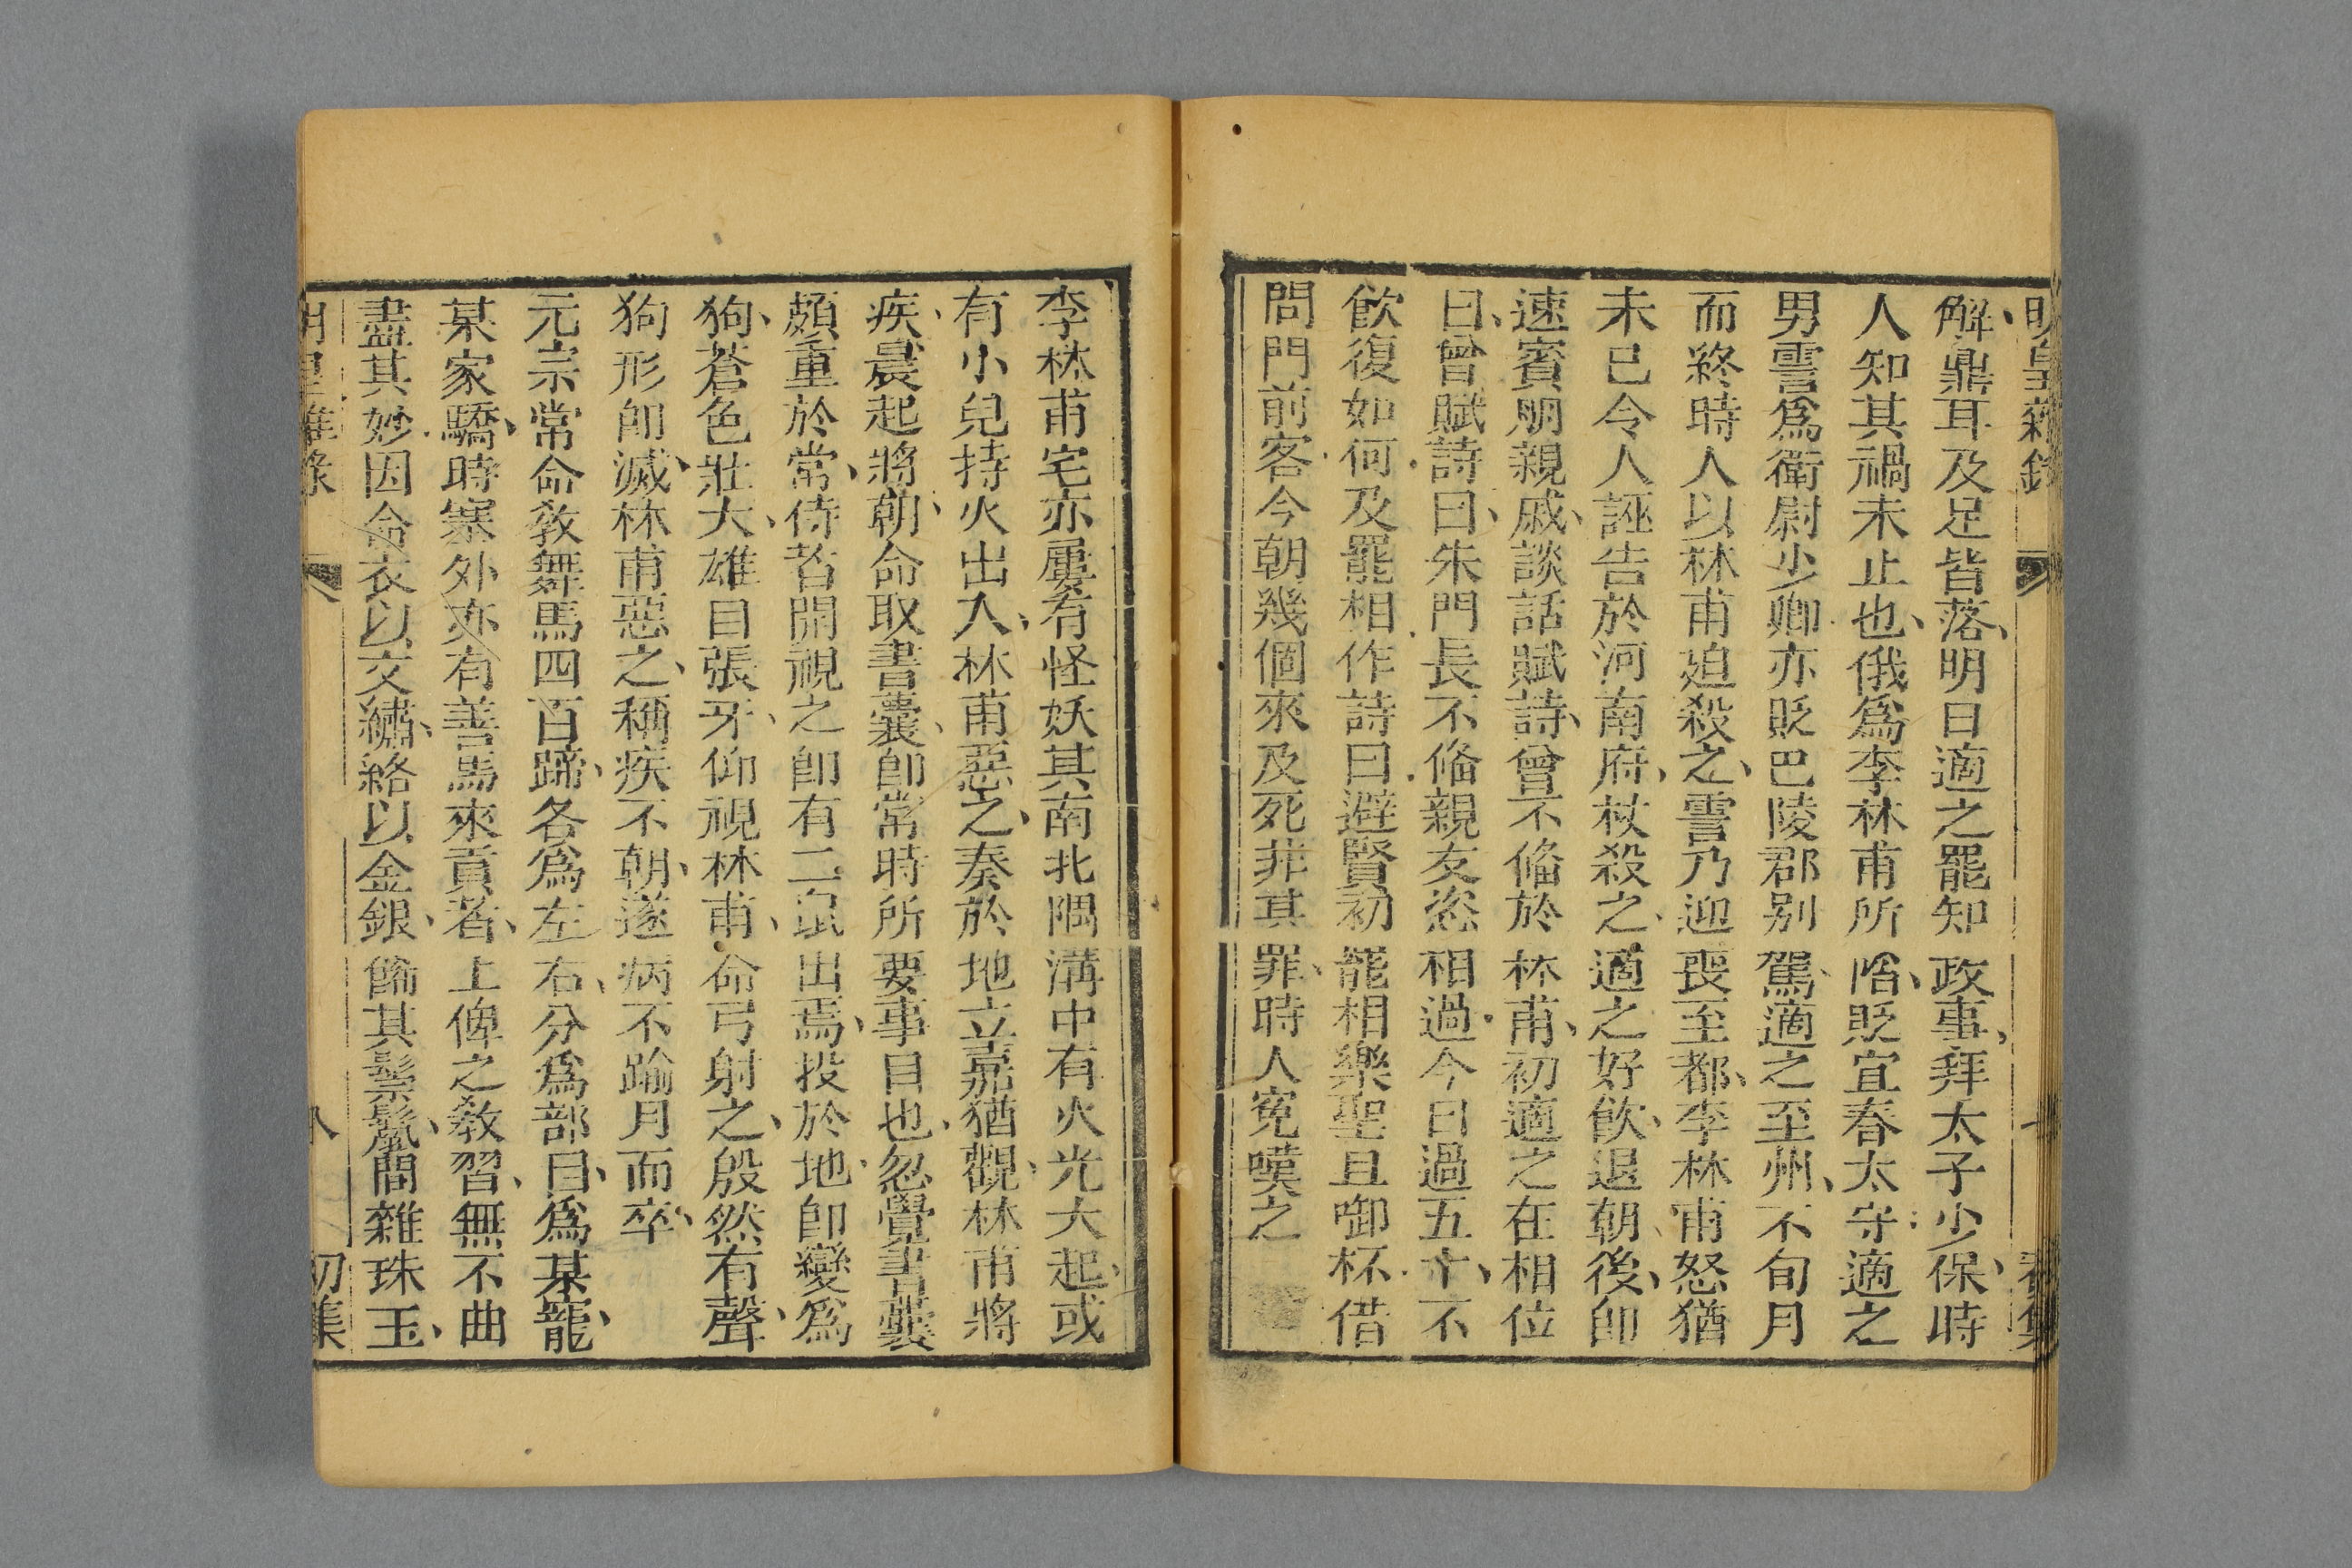 明皇雜錄
解、鼎耳及足皆落、明日適之罷知政事、拜太子少保、時
人知其禍未止也、俄爲李林甫所陷、貶宜春太守、適之
男霅爲衛尉少卿、亦貶巴陵郡别駕、適之至州、不旬月
而終、時人以林甫迫殺之、霅乃迎喪至都、李林甫怒猶
未已、令人誣告於河南府、杖殺之、適之好飲、退朝後、卽
速賓朋親戚、談話賦詩、曾不俻於林甫、初適之在相位
日、曾賦詩曰、朱門長不俻親友恣相過、今日過五十、不
飲復如何、及罷相作詩曰、避賢初罷相樂聖且啣杯、借
問門前客、今朝幾個來、及死非其罪、時人寃嘆之
李林甫宅亦屢有怪妖其南北隅溝中有火光大起、或
有小兒持火出入、林甫惡之、奏於地立嘉猶觀、林甫將
疾、晨起將朝、命取書囊、卽常時所要事目也、忽覺書囊
頗重於常、侍者開視之卽有二鼠出焉、投於地、卽變爲
狗、蒼色壯大、雄目張牙、仰視林甫、命弓射之、殷然有聲、
狗形卽滅、林甫惡之、稱疾不朝、遂病不踰月而卒、
元宗常命教舞馬四百蹄、各爲左右、分爲部、目、爲某寵、
某家驕、時塞外亦有善馬來貢者、上俾之教習、無不曲
盡其妙、因命衣以文繡、絡以金銀、餙其鬃鬣、間雜珠玉、
明皇雜錄 八 初集